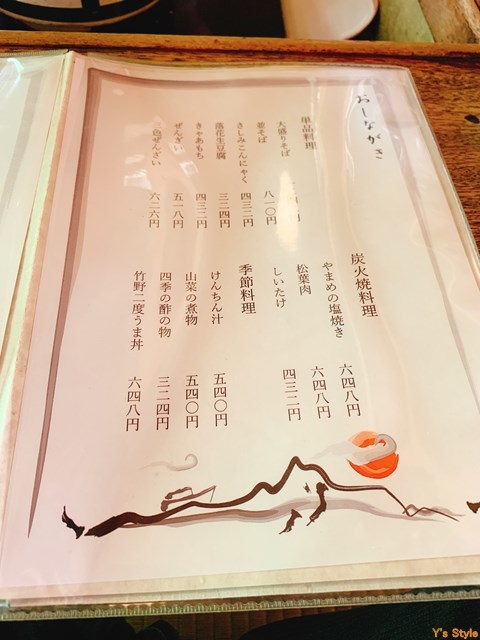 おしながき
単品料理
大盛りそば
並そば 八一〇円
さしみこんにゃく 四三二円
落花生豆腐 三二四円
きゃあもち 四三二円
ぜんざい 五一八円
色ぜんざい 六二六円
炭火焼料理
やまめの塩焼き 六四八円
松葉肉 六四八円
しいたけ 四三二円
季節料理
けんちん汁 五四〇円
山菜の煮物 五四〇円
四季の酢の物 三二四円
竹野二度うま丼 六四八円
Y's Style